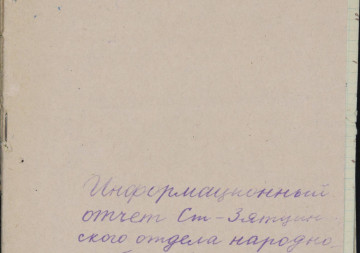 Информационный
отчет Ст-Зятцин
ского отдела народно